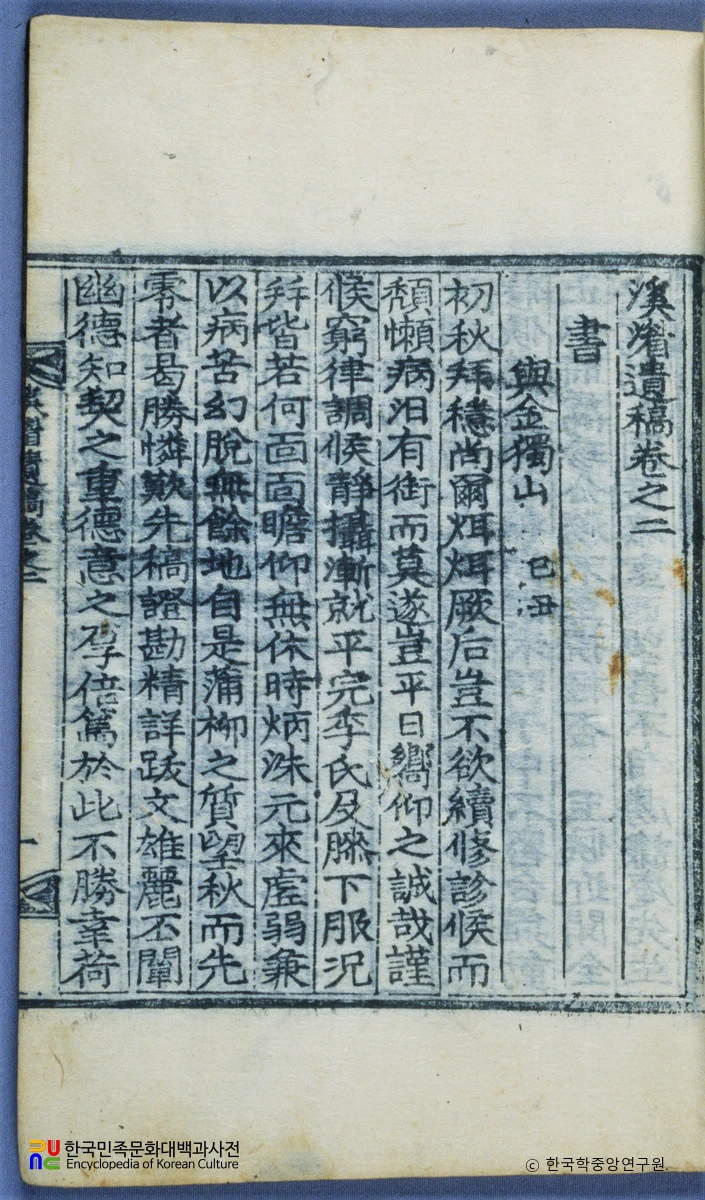 溪潛遺稿卷之二
書
與金獨山 己丑
初秋拜穩尚爾炯炯厥后豈不欲續修診候而
頹懶病汨有銜而莫遂豈平日嚮仰之誠哉謹
候窮律調候靜攝漸就平完季氏及膝下服況
幷皆若何面面瞻仰無休時炳洙元來虛弱兼
以病苦幻脫無餘地自是蒲柳之質望秋而先
零者曷勝憐歎先稿證勘精詳跋文雄麗丕闡
幽德知契之重德意之孚倍篤於此不勝幸荷
遺稿卷之二
一
한국민족문화대백과사전
Encyclopedia of Korean Culture
ⓒ 한국학중앙연구원.